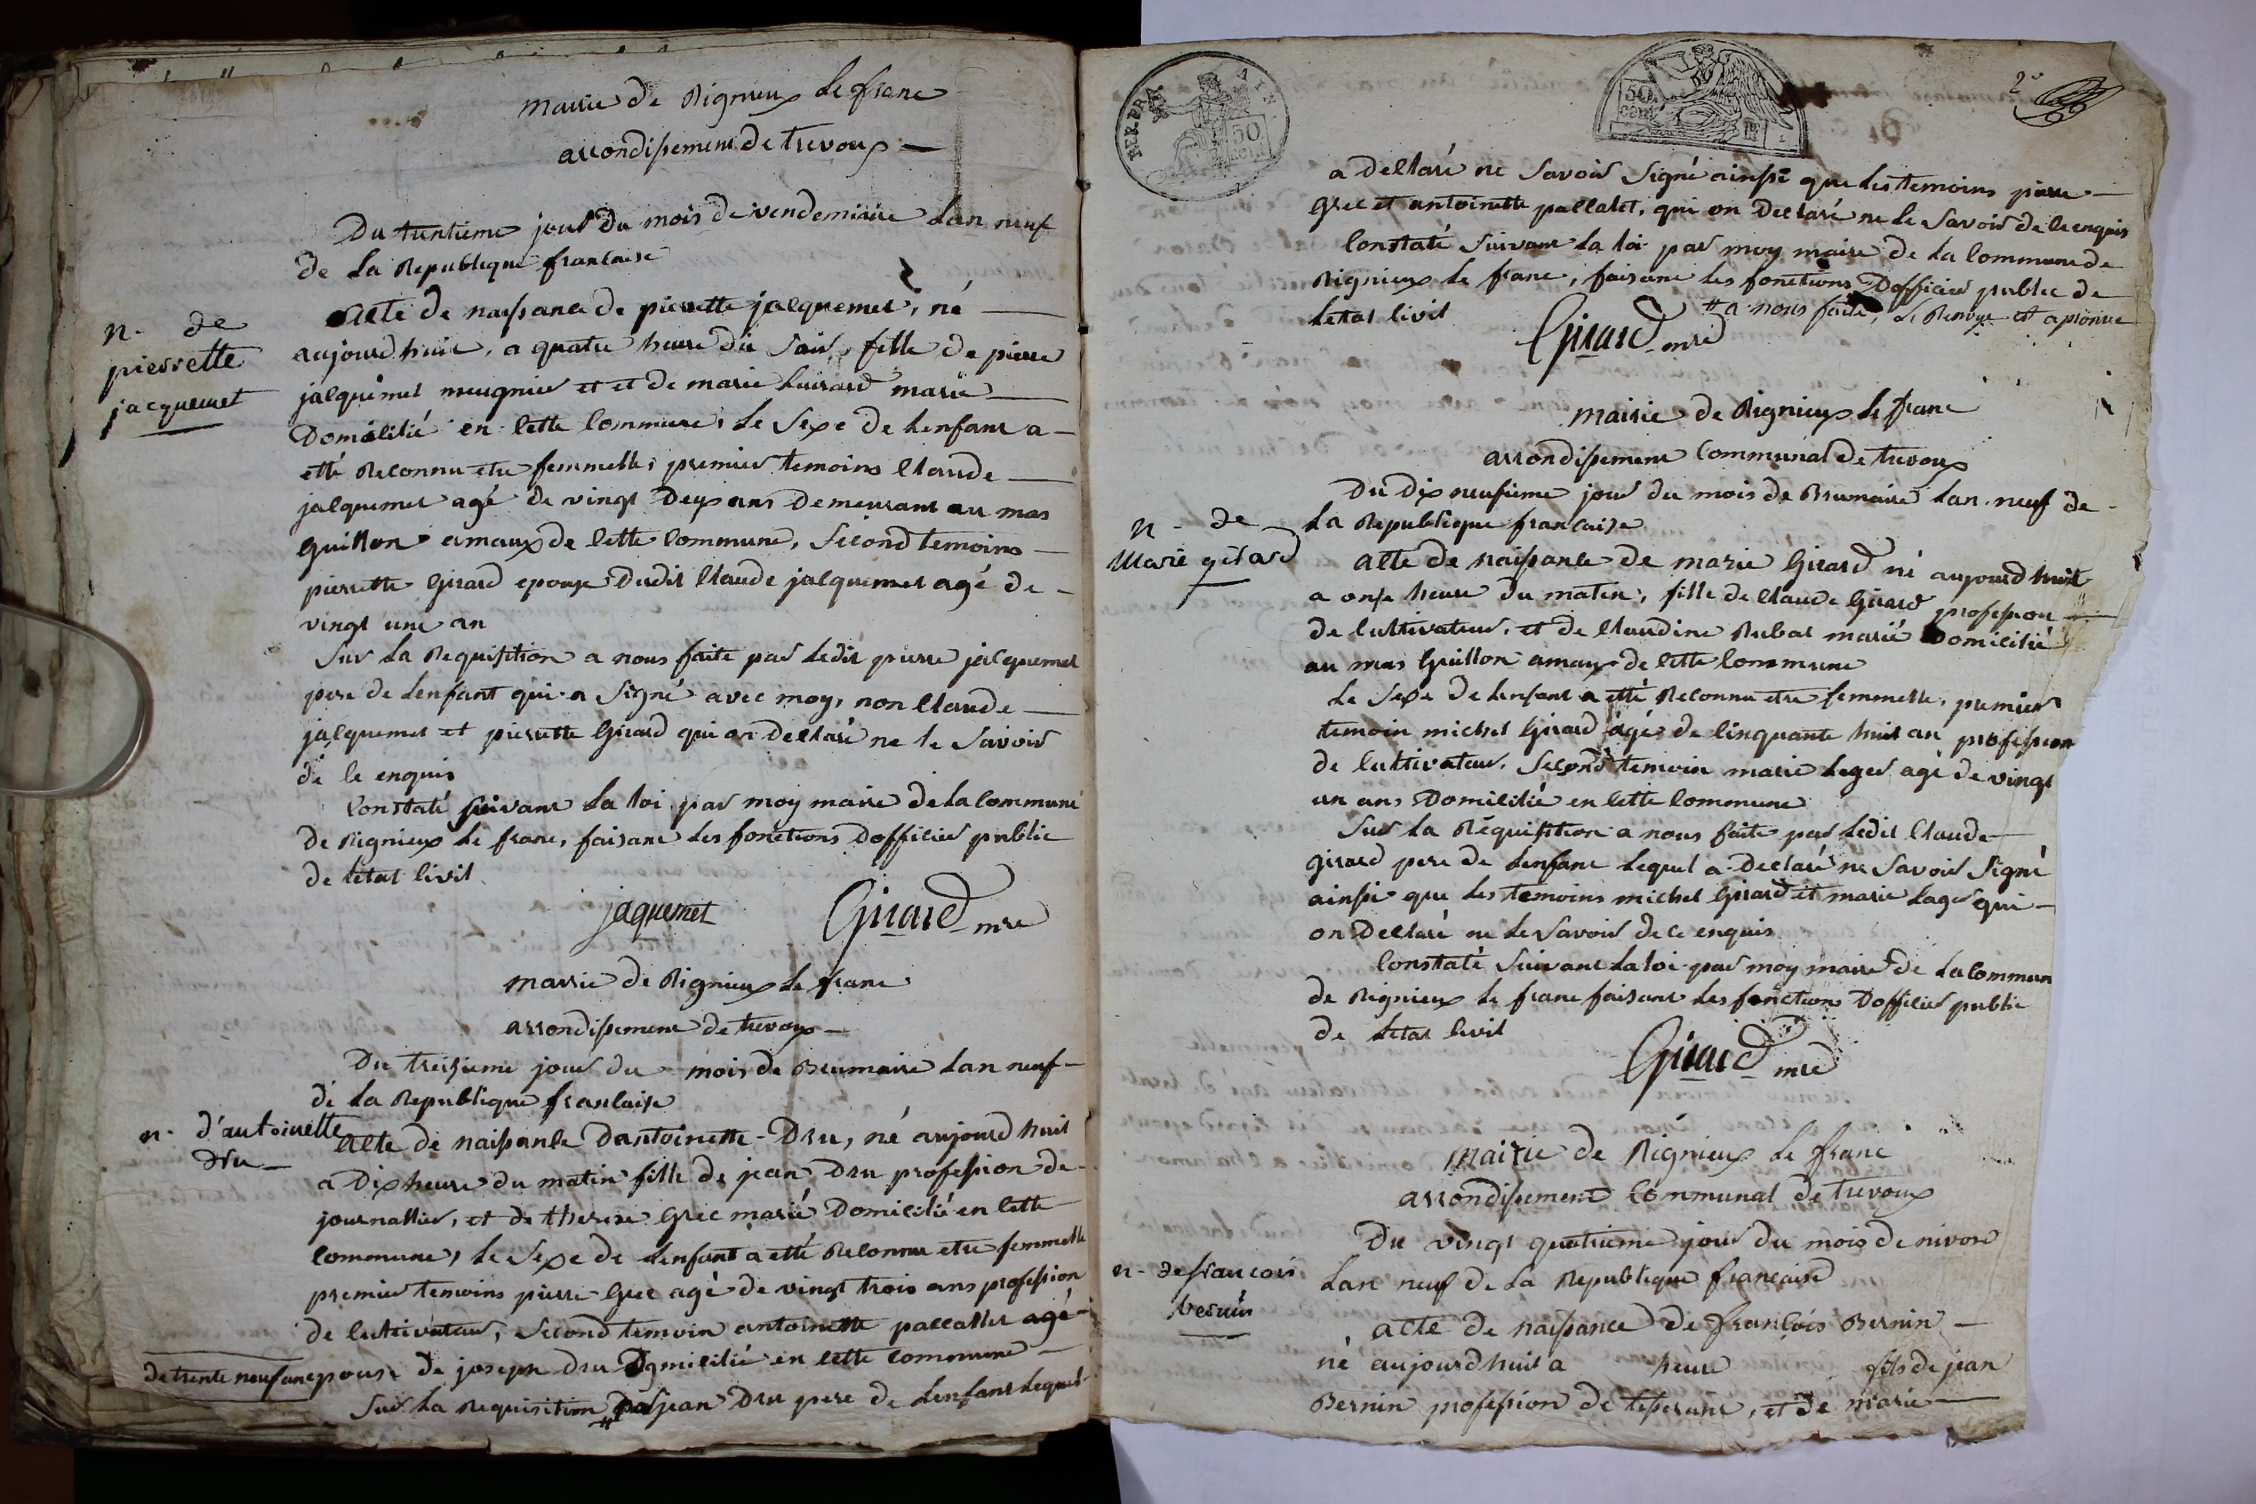 mairie de Rignieux le franc
arrondissement de trevoux
Du trentieme jour Du mois de vendemiaire Lan neuf
de La Republique francaise
n. de
pierrette
jacquemet
Acte de naissance de pierrette jacquemet, né
aujourdhuit, a quatre heure du soir, fille de pierre
jacquemet meugnier et et de marie marié
Domicilié en cette commune, Le sexe de Lenfant a
etté Reconnu etre femmelle, premier temoins Claude
jacquemet agé de vingt Deux ans Demeurant au mas
Guillon amaux de cette commune, second temoins
pierrette Girard epouse Dudit Claude jacquemet agé de
vingt une an
Sur La Requisition a nous faite par Ledit pierre jacquemet
pere de Lenfant qui a signé avec moy, non Claude
jacquemet et pierrette Girard qui on Declaré ne le savoir
de ce enquis
Constaté suivant La loi par moy maire de La commune
de Rignieux le franc, faisant les fonctions Dofficier public
de Létat civil
jaquemet Girard mre
mairie de Rignieux Le franc
arrondissement de trevoux
Du treisieme jour du mois de Brumaire Lan neuf
de La Republique francaise
n. d'antoinette
dru
Acte de naissance Dantoinette Dru, né aujourdhuit
a Dix heure du matin fille de jean Dru profession de
journallier, et de therese Grec marié Domicilié en cette
commune, Le sexe de Lenfant a etté Reconnu etre femmelle
premier temoins pierre Grec agé de vingt trois ans profession
de cultivateur, second temoin antoinette pallatet agé
de trente neuf an epouse de joseph Dru Domicilié en cette commune
Sur La Requisition # par jean Dru pere de Lenfant Lequel
2e
REP. FRA. 50 CENT.
50 CENT.
a declaré ne savoir signé ainsi que les temoins pierre
Grec et antoinette pallatet, qui on Declaré ne le savoir de ce enquis
Constaté suivant La loi par moy maire de La commune de
Rignieux le franc, faisant les fonctions Dofficier public de
Letat civil # a nous faite, Le Renvoye et aprouvé
Girard mre
mairie de Rignieux le franc
arrondissement communal de trevoux
Du Dix neufieme jour du mois de Brumaire Lan neuf de
La Republique francaise
n. de
Marie girard
Acte de naissance de marie Girard né aujourdhuit
a onse heure du matin, fille de Claude Girard profession
de cultivateur, et de Claudine Rubat marié Domicilié
au mas Guillon amaux de cette commune
Le sexe de Lenfant a etté Reconnu etre femmelle, premier
temoin michel Girard agé de cinquante huit an profession
de cultivateur, second temoin marie Leger agé de vingt
un ans Domicilié en cette commune
Sur La Requisition a nous faite par Ledit Claude
Girard pere de Lenfant Lequel a Declaré ne savoir signé
ainsi que les temoins michel Girard et marie Leger qui
on Declaré ne le savoir de ce enquis
Constaté suivant La loi par moy maire de La commun
de Rignieux le franc faisant les fonctions Dofficier public
de Letat civil
Girard mre
mairie de Rignieux le franc
arrondissement communal de trevoux
Du vingt quatrieme jour du mois de nivose
Lan neuf de La Republique francaise
n. de francois
bernin
acte de naissance de francois Bernin
né aujourdhuit a heure fils de jean
Bernin profession de tisserant, et de marie